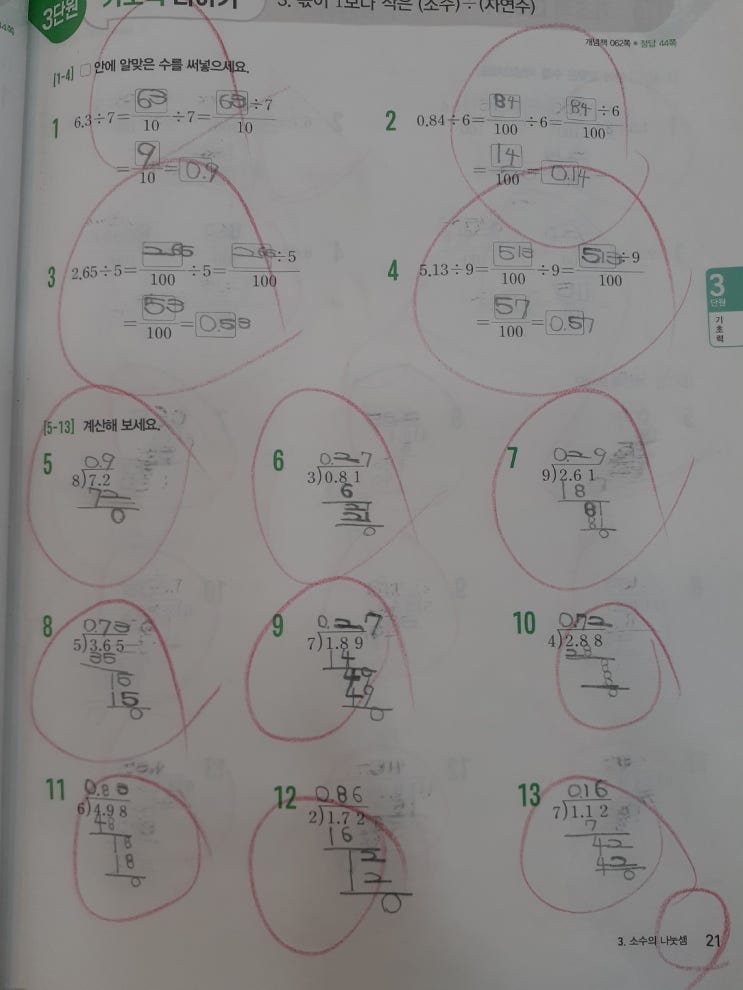 3단원
3. 몫이 1보다 작은 (소수)÷(자연수)
개념책 062쪽 • 정답 44쪽
[1-4] □ 안에 알맞은 수를 써넣으세요.
1 6.3÷7=63/10÷7=63÷7/10
=9/10=0.9
2 0.84÷6=84/100÷6=84÷6/100
=14/100=0.14
3 2.65÷5=265/100÷5=265÷5/100
=53/100=0.53
4 5.13÷9=513/100÷9=513÷9/100
=57/100=0.57
3
단원
기초력
[5-13] 계산해 보세요.
5
0.9
8)7.2
72
0
6
0.27
3)0.81
6
21
21
0
7
0.29
9)2.61
18
81
81
0
8
0.73
5)3.65
35
15
15
0
9
0.27
7)1.89
14
49
49
0
10
0.72
4)2.88
28
8
8
0
11
0.83
6)4.98
48
18
18
0
12
0.86
2)1.72
16
12
12
0
13
0.16
7)1.12
7
42
42
0
3. 소수의 나눗셈 21